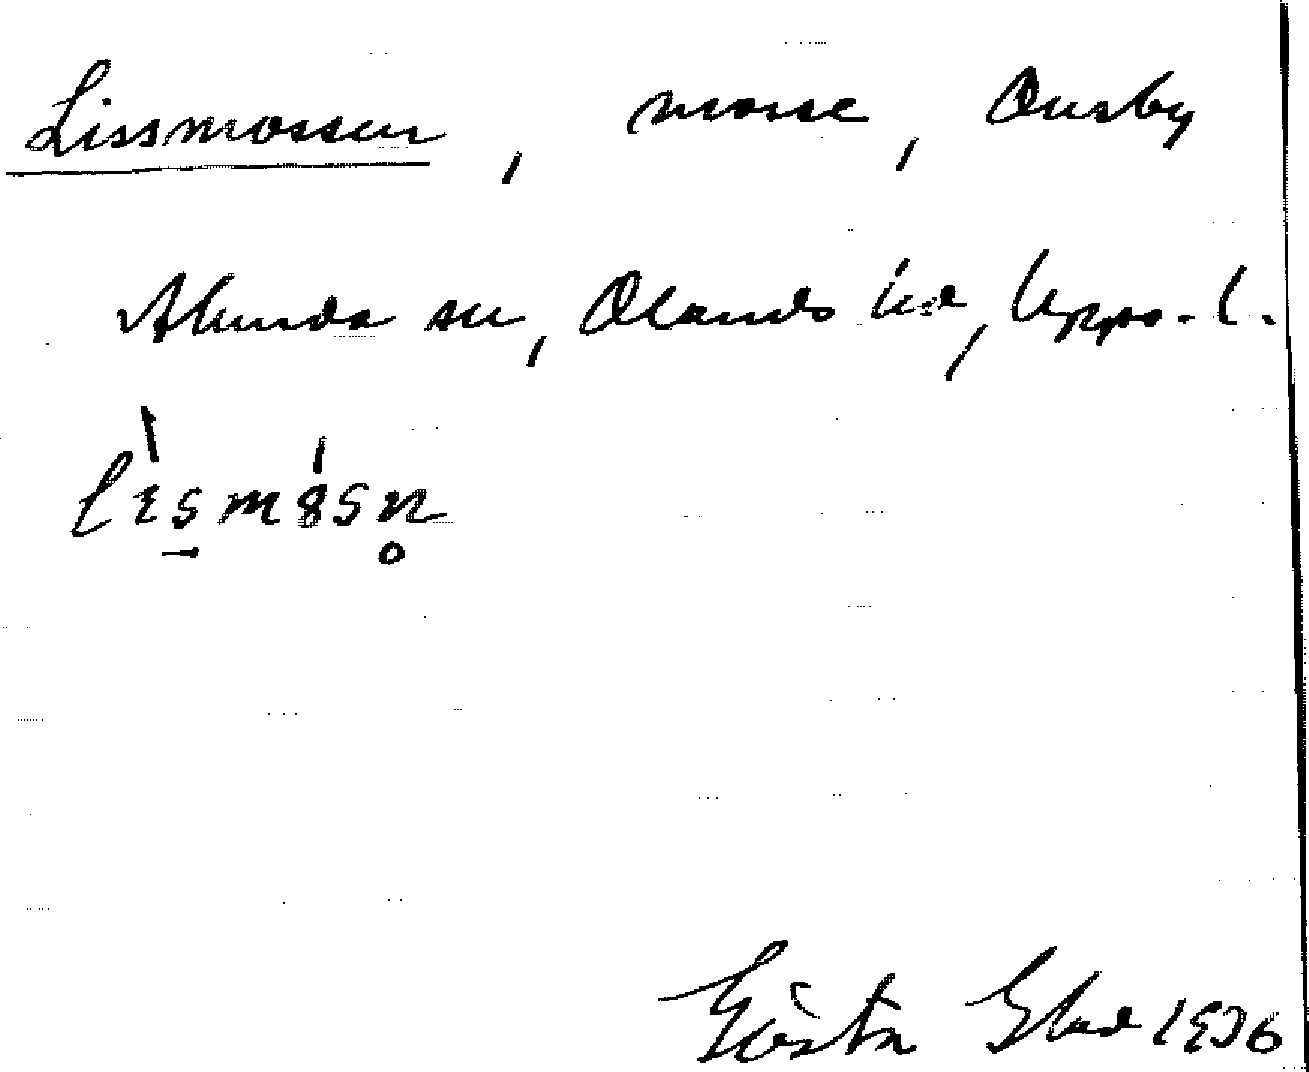 Lissmossen, mosse, Ousby
Alunda sn, Olands hd, Upps. l.
Gösta Glad 1936